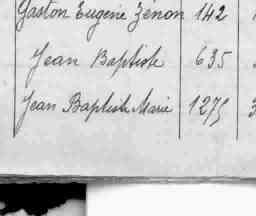 Gaston Eugène Zenon 142
Jean Baptiste 635
Jean Baptiste Marie 1275